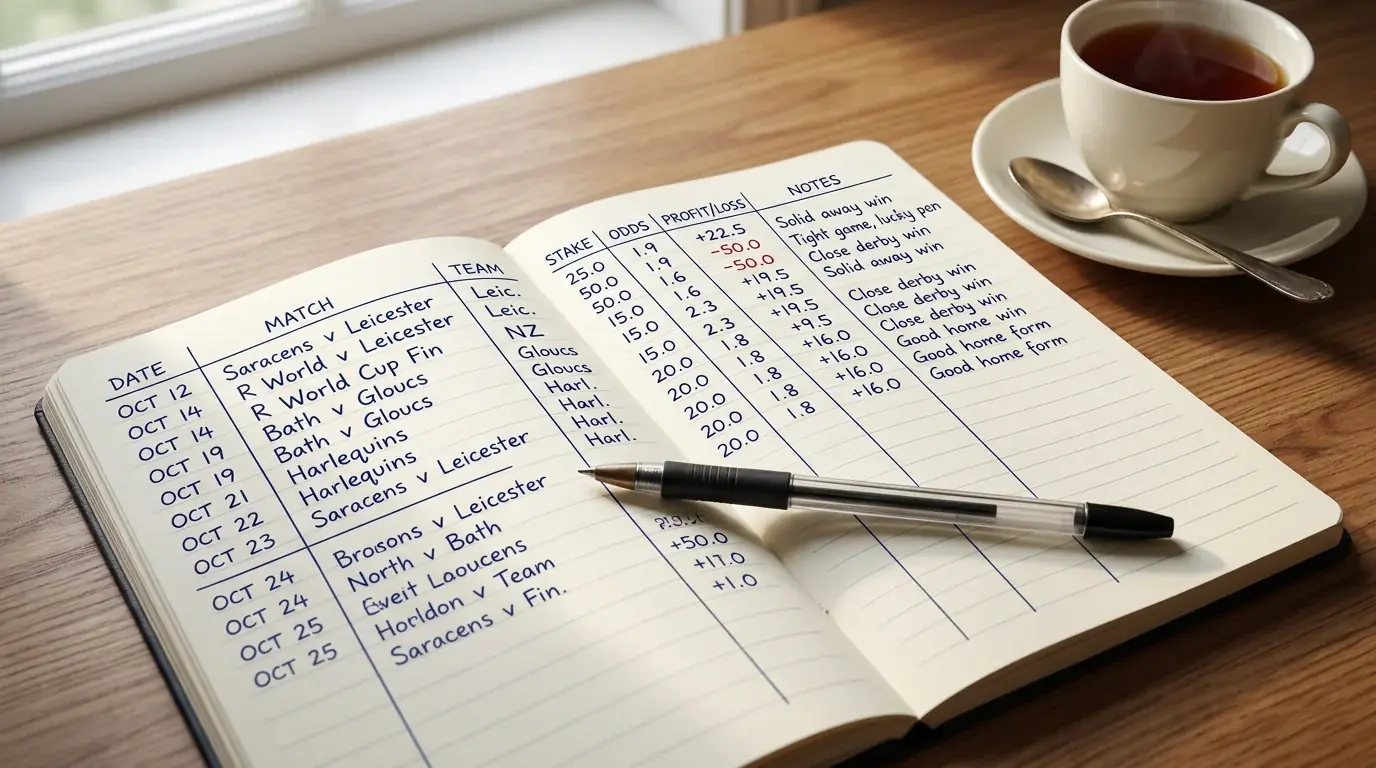 DATE MATCH TEAM
OCT 12 Saracens v Leicester Leic.
OCT 14 R World v Leicester Leic.
OCT 14 R World Cup Fin NZ
OCT 19 Bath v Gloucs Gloucs
OCT 19 Bath v Gloucs Gloucs
OCT 21 Harlequins Harl.
OCT 22 Harlequins Harl.
OCT 23 Saracens v Leicester Harl.
OCT 24 Brosons v Leicester Harl.
OCT 24 North v Bath
OCT 25 Eweit Laoucens +50.0
OCT 25 Horldon v Team +17.0
Saracens v Fin. +1.0
STAKE ODDS PROFIT/LOSS NOTES
25.0 1.9 +22.5 Solid away win
50.0 1.9 -50.0 Tight game, lucky pen
50.0 1.6 -50.0 Close derby win
15.0 1.6 +19.5 Solid away win
15.0 2.3 +19.5 Close derby win
15.0 2.3 +19.5 Close derby win
20.0 1.8 +9.5 Close derby win
20.0 1.8 +16.0 Good home win
20.0 1.8 +16.0 Good home form
20.0 1.8 +16.0 Good home form
+16.0